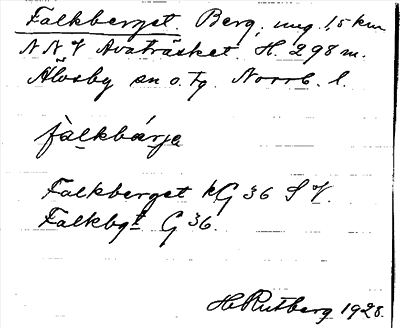 Falkberget. Berg, ung. 1,5 km
NNV Avaträsket. H. 298 m.
Älvsby sn o. tg. Norrb. l.
fàlkbárja
Falkberget kG 36 SV.
Falkbgt G 36.
H Rutberg 1928.